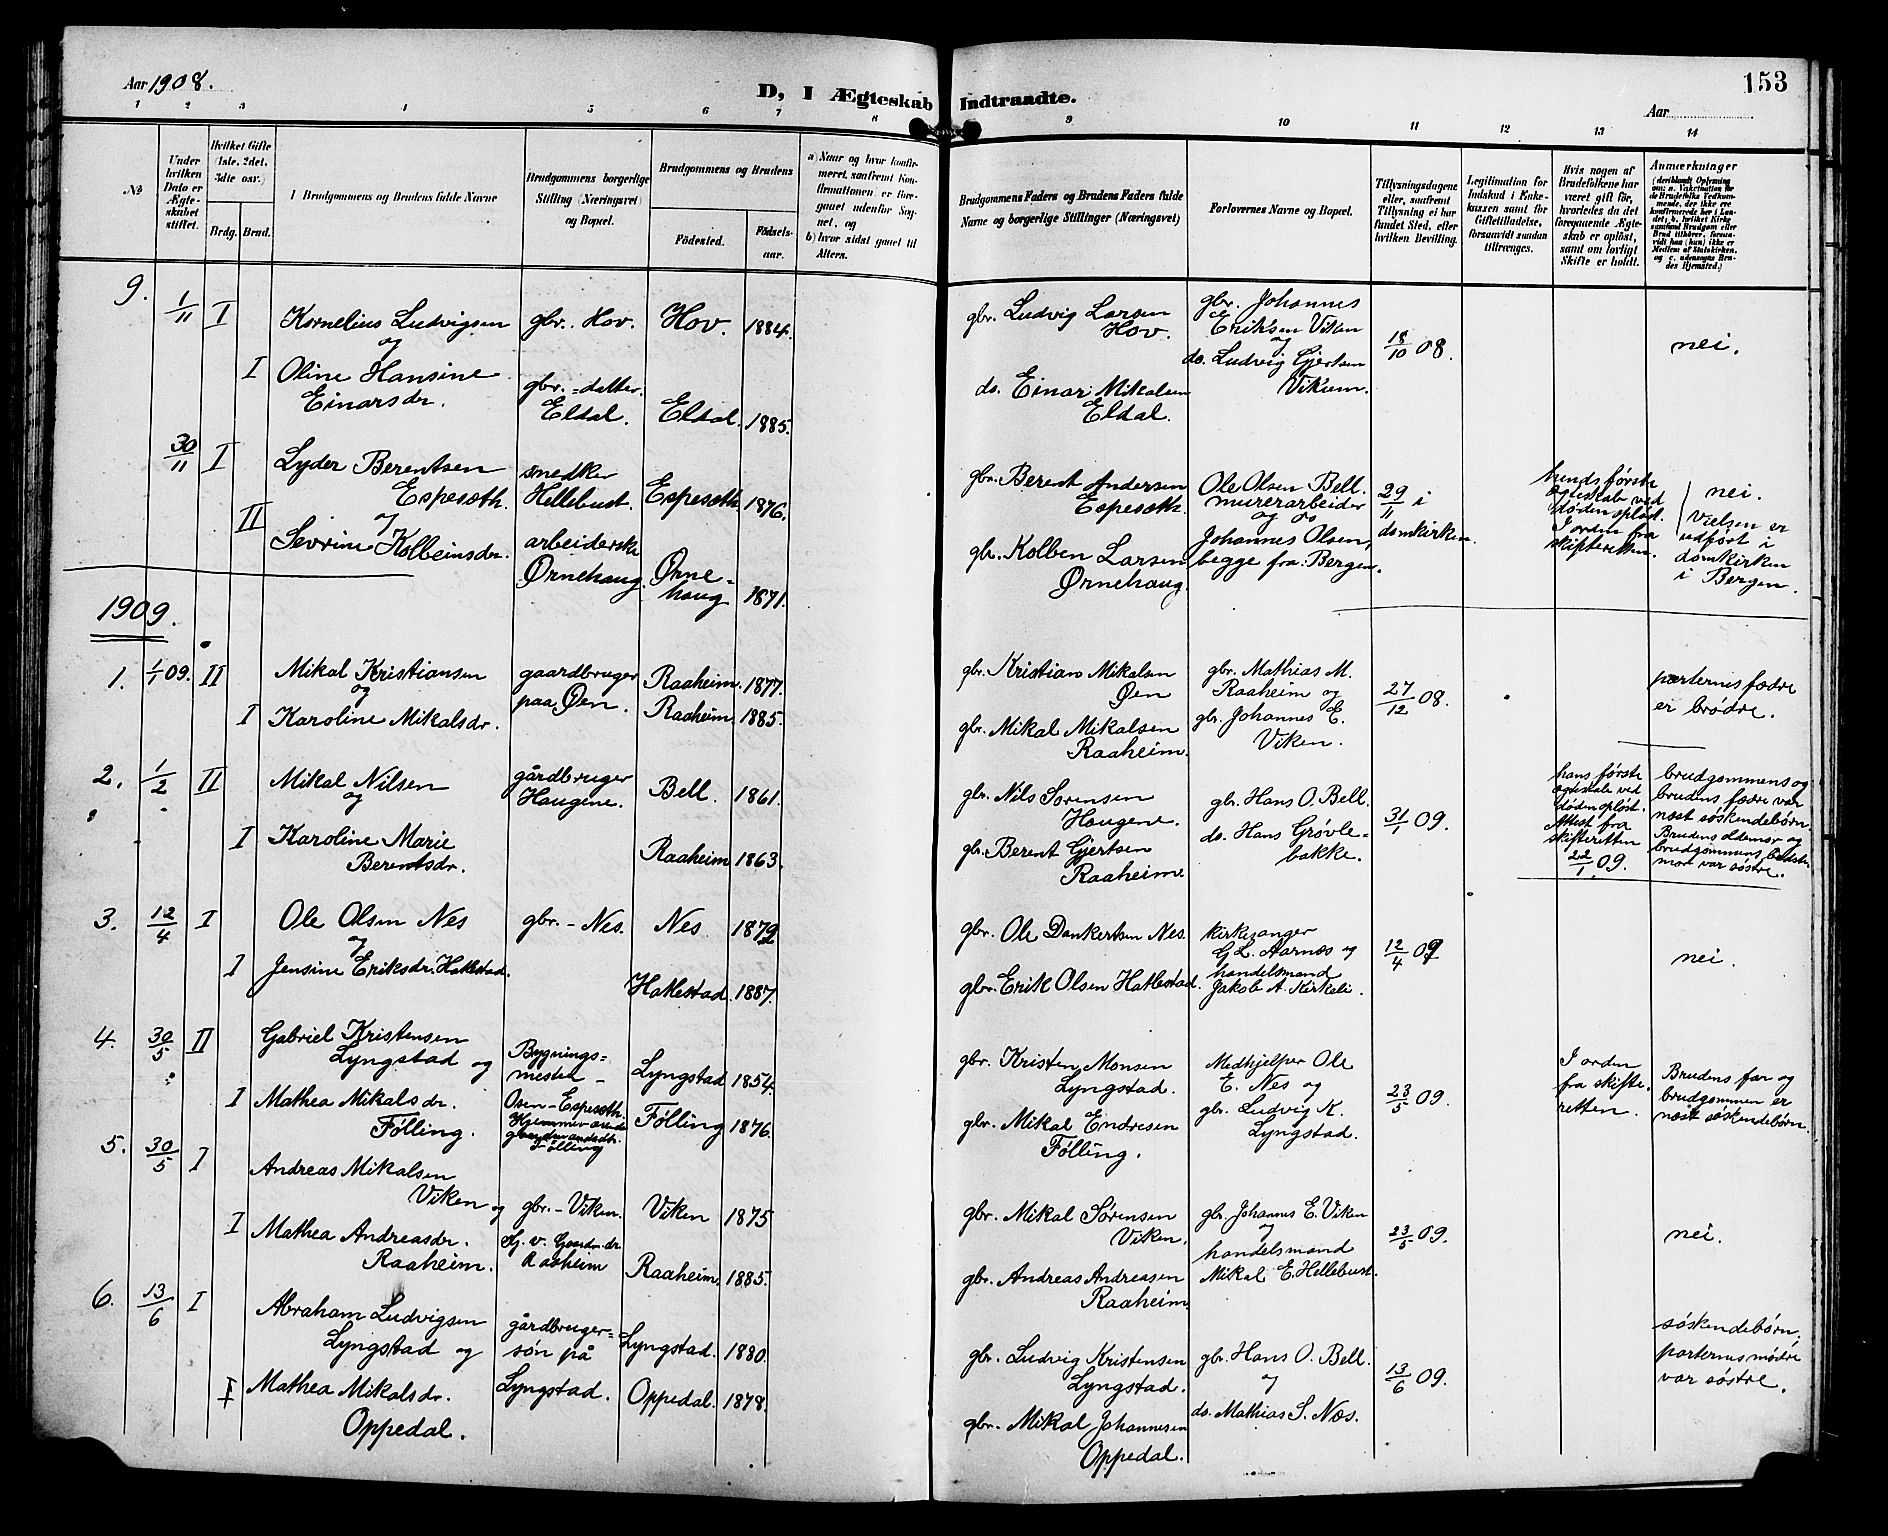 Aar 1908.
D, I Ægteskab Indtraadte.
153
Aar
1 2 3 4 5 6 7 8 9 10 11 12 13 14
No
Under hvilken Dato er Ægteskabet stiftet.
Hvilket Gifte (1ste, 2det, 3dte osv.)
Brdg. Brud.
Brudgommens og Brudens fulde Navne
Brudgommens borgerlige Stilling (Næringsvei) og Bopæl.
Brudgommens og Brudens
Fødested.
Fødsels-aar.
a) Naar og hvor konfirmeret, saafremt Konfirmationen er foregaaet udenfor Sognet, og
b) hvor sidst gaaet til Alters.
Brudgommens Faders og Brudens Faders fulde Navne og borgerlige Stillinger (Næringsvei)
Forlovernes Navne og Bopæl.
Tillysningsdagene eller, saafremt Tillysning ei har fundet Sted, efter hvilken Bevilling.
Legitimation for Indskud i Enkekassen samt for Giftetilladelse, forsaavidt saadan tiltrænges.
Hvis nogen af Brudefolkene har været gift før, hvorledes da det foregaaende Ægteskab er opløst, samt om lovligt Skifte er holdt.
Anmærkninger
9. 1/11 I
Kornelius Ludvigsen
og
I Oline Hansine
Einarsdr.
gbr. Hov.
gbr.-datter
Eldal.
Hov. 1884.
Eldal. 1885.
gbr. Ludvig Larsen
Hov.
do. Einar Mikalsen
Eldal.
gbr. Johannes
Eriksen Viken
og
do. Ludvig Gjertsen
Vikum.
18/10 08.
nei.
30/11 I
Lyder Berentsen
Espesæth.
og
II Sevrine Kolbeinsdr.
snedker
Hellebust.
arbeiderske
Ørnehaug.
Espesæth. 1876.
Ørne-
haug 1871.
gbr. Berent Andersen
Espesæth.
gbr. Kolben Larsen
Ørnehaug.
Ole Olsen Bell.
murerarbeider
og do
Johannes Olsen,
begge fra Bergen.
29/11 i
domkirken.
hends første
ægteskab ved
døden opløst.
I orden fra
skifteretten.
nei.
Vielsen er
udført i
domkirken
i Bergen.
1909.
1. 1/1 09. II
Mikal Kristiansen
og
I Karoline Mikalsdr.
gaardbruger
paa Øen.
Raaheim. 1877.
Raaheim. 1885.
gbr. Kristian Mikalsen
Øen
gbr. Mikal Mikalsen
Raaheim.
gbr. Mathias M.
Raaheim og
gbr. Johannes E.
Viken.
27/12 08.
parternes fædre
er brødre.
2. 1/2 II
Mikal Nilsen
og
I Karoline Marie
Berentsdr.
gårdbruger
Haugene.
Bell. 1861.
Raaheim 1863.
gbr. Nils Sørensen
Haugene.
gbr. Berent Gjertsen
Raaheim.
gbr. Hans O. Bell.
do. Hans Grøvle-
bakke.
31/1 09.
hans første
ægteskab ved
døden opløst.
Attest fra
skifteretten
22/1 09.
brudgommens og
brudens fædre var
næst søskendebørn.
Brudens oldemor og
brudgommens bedste-
mor var søstre.
3. 12/4 I
Ole Olsen Nes
og
I Jensine Eriksdr. Hatlestad.
gbr. - Nes.
Nes. 1879
Hatlestad. 1887.
gbr. Ole Dankertsen Nes.
gbr. Erik Olsen Hatlestad.
kirkesanger
G. L. Aarnæs og
handelsmand
Jakob A. Kirkeli.
12/4 09
nei.
4. 30/5 II
Gabriel Kristensen
Lyngstad og
I Mathea Mikalsdr.
Følling.
Bygnings-
mester -
Osen-Espesæth.
Hjemmeværende
Følling
Lyngstad 1854.
Følling 1876.
gbr. Kristen Monsen
Lyngstad.
gbr. Mikal Endresen
Følling.
Medhjelper Ole
E. Nes og
gbr. Ludvig K.
Lyngstad.
23/5 09.
I orden
fra skifte-
retten.
Brudens far og
brudgommen er
næst søskendebørn.
5. 30/5 I
Andreas Mikalsen
Viken og
I Mathea Andreasdr.
Raaheim.
gbr. - Viken.
Hj. v. Gaardr. dr.
Raaheim
Viken 1875
Raaheim. 1885.
gbr. Mikal Sørensen
Viken.
gbr. Andreas Andreasen
Raaheim.
gbr. Johannes E. Viken
og
handelsmand
Mikal E. Hellebust.
23/5 09.
nei.
6. 13/6 I
Abraham Ludvigsen
Lyngstad og
I Mathea Mikalsdr.
Oppedal.
gårdbruger-
søn på
Lyngstad.
Lyngstad. 1880.
Oppedal. 1878.
gbr. Ludvig Kristensen
Lyngstad.
gbr. Mikal Johannesen
Oppedal.
gbr. Hans O. Bell.
og
do. Mathias S. Næs.
13/6 09.
søskendebørn.
parternes mødre
var søstre.